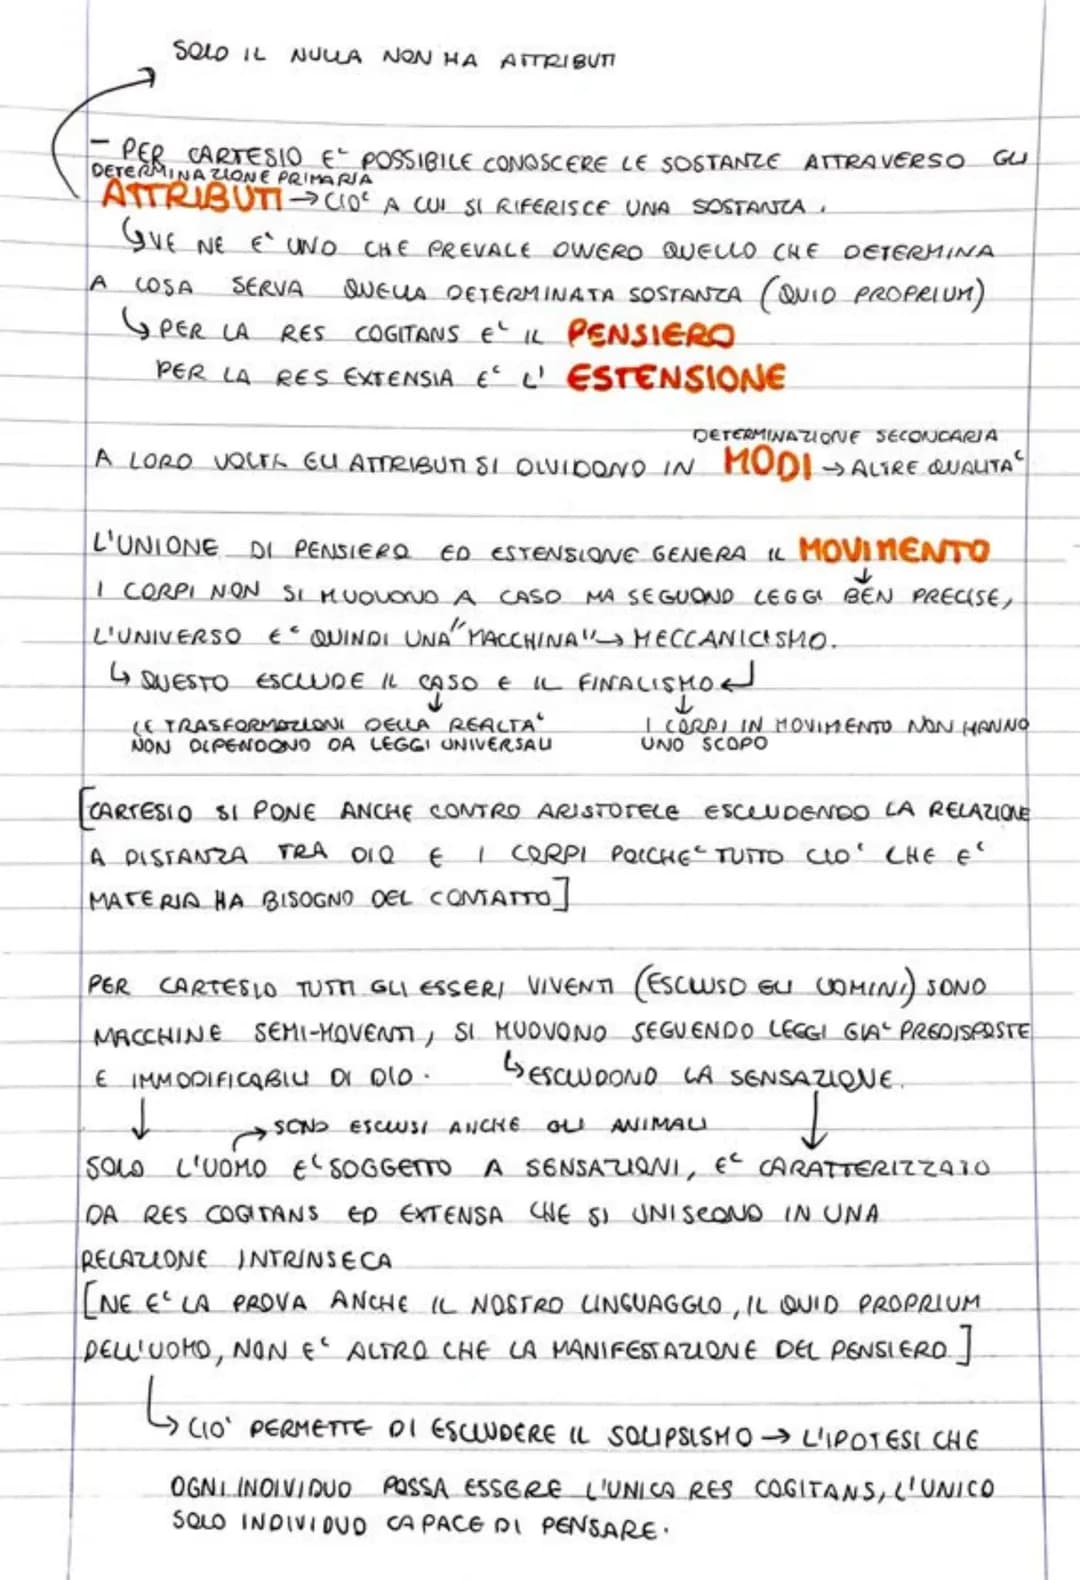 SOLO IL NULLA NON HA ATTRIBUTI
- PER CARTESIO E' POSSIBILE CONOSCERE LE SOSTANZE ATTRAVERSO GLI
DETERMINAZIONE PRIMARIA
ATTRIBUTI → CIOE' A CUI SI RIFERISCE UNA SOSTANZA.
↳ VE NE E' UNO CHE PREVALE OVVERO QUELLO CHE DETERMINA
A COSA SERVA QUELLA DETERMINATA SOSTANZA (QUID PROPRIUM)
↳ PER LA RES COGITANS E' IL PENSIERO
PER LA RES EXTENSIA E' L' ESTENSIONE
DETERMINAZIONE SECONDARIA
A LORO VOLTA GLI ATTRIBUTI SI DIVIDONO IN MODI → ALTRE QUALITA'
L'UNIONE DI PENSIERO ED ESTENSIONE GENERA IL MOVIMENTO
I CORPI NON SI MUOVONO A CASO MA SEGUONO LEGGI BEN PRECISE,
L'UNIVERSO E' QUINDI UNA "MACCHINA" → MECCANICISMO.
↳ QUESTO ESCLUDE IL CASO E IL FINALISMO ↵
↓ ↓
LE TRASFORMAZIONI DELLA REALTA' I CORPI IN MOVIMENTO NON HANNO
NON DIPENDONO DA LEGGI UNIVERSALI UNO SCOPO
[CARTESIO SI PONE ANCHE CONTRO ARISTOTELE ESCLUDENDO LA RELAZIONE
A DISTANZA TRA DIO E I CORPI POICHE' TUTTO CIO' CHE E'
MATERIA HA BISOGNO DEL CONTATTO]
PER CARTESIO TUTTI GLI ESSERI VIVENTI (ESCLUSO GLI UOMINI) SONO
MACCHINE SEMI-MOVENTI, SI MUOVONO SEGUENDO LEGGI GIA' PREDISPOSTE
E IMMODIFICABILI DI DIO. ↳ ESCLUDONO LA SENSAZIONE.
↓ → SONO ESCLUSI ANCHE GLI ANIMALI ↓
SOLO L'UOMO E' SOGGETTO A SENSAZIONI, E' CARATTERIZZATO
DA RES COGITANS ED EXTENSA CHE SI UNISCONO IN UNA
RELAZIONE INTRINSECA
[NE E' LA PROVA ANCHE IL NOSTRO LINGUAGGIO, IL QUID PROPRIUM
DELL'UOMO, NON E' ALTRO CHE LA MANIFESTAZIONE DEL PENSIERO]
↳ CIO' PERMETTE DI ESCLUDERE IL SOLIPSISMO → L'IPOTESI CHE
OGNI INDIVIDUO POSSA ESSERE L'UNICA RES COGITANS, L'UNICO
SOLO INDIVIDUO CAPACE DI PENSARE.